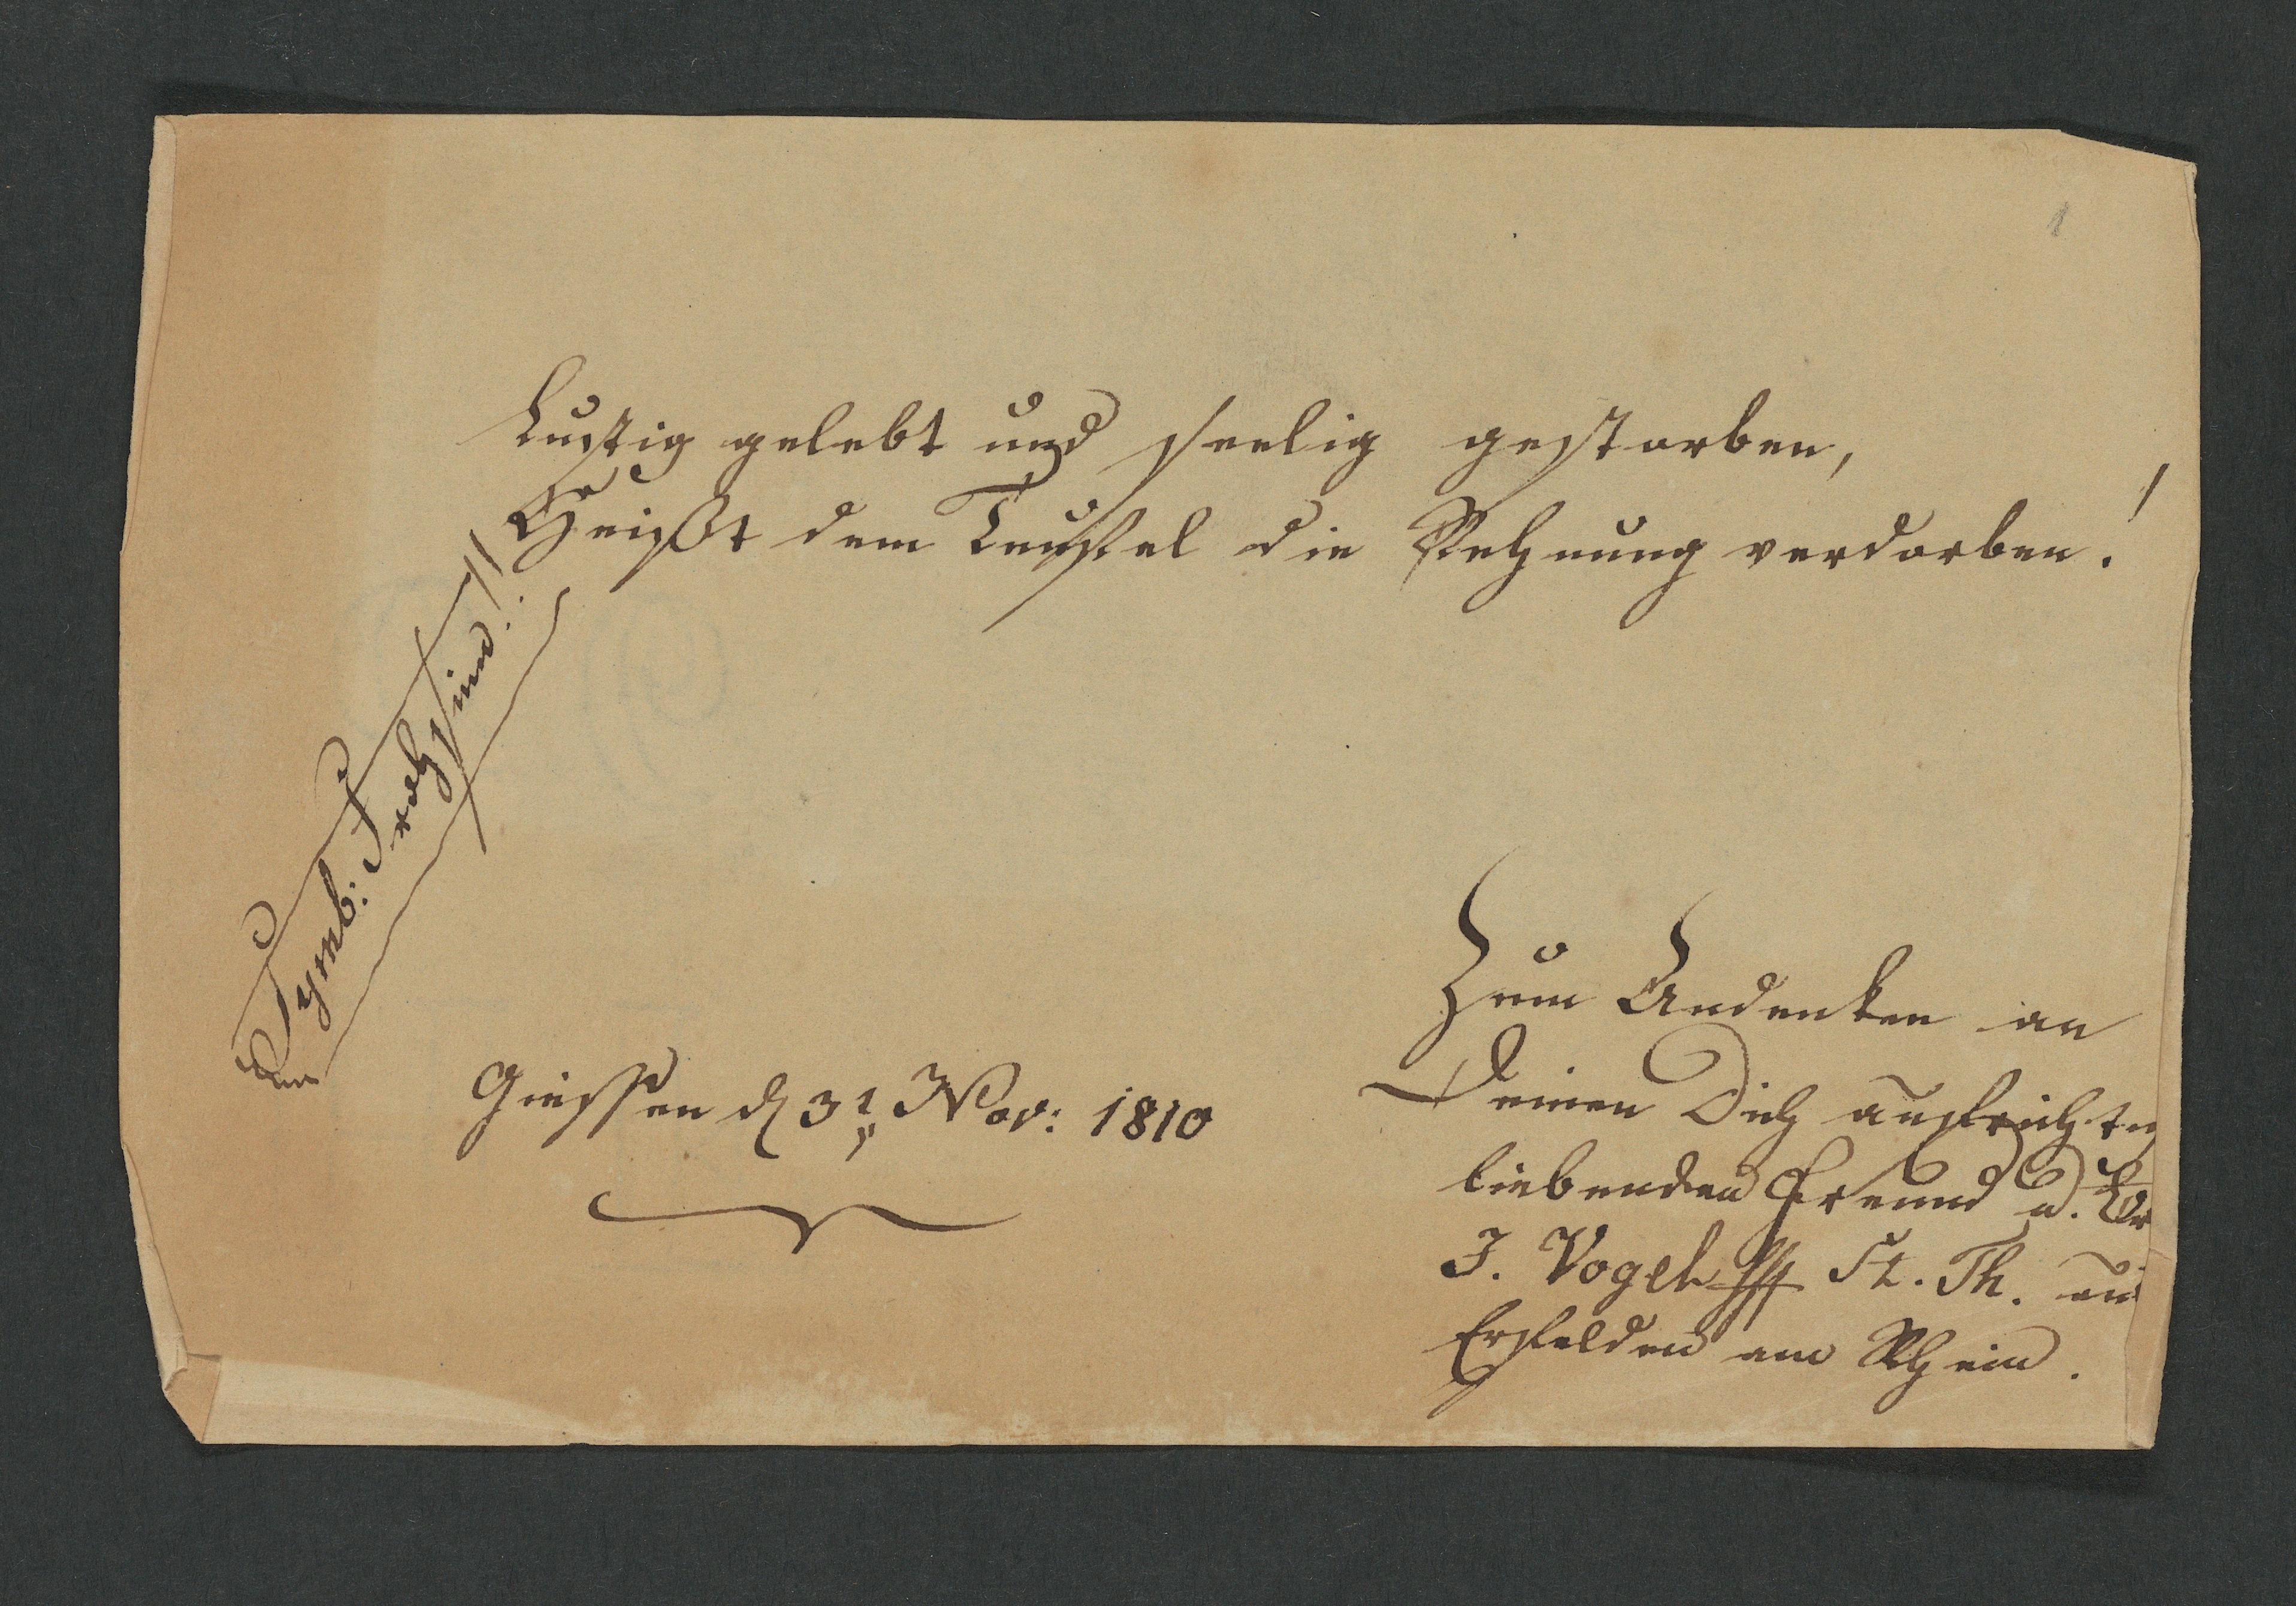 Lustig gelebt und seelig gestorben,
Heißt dem Teufel die Rechnung verdorben!
Symb: Frohsinn!
Giessen d 3t Nov: 1810
Zum Andenken an
Deinen Dich aufricht
liebenden Freund u. Br
J. Vogel St. Th. aus
Erfelden am Rhein.